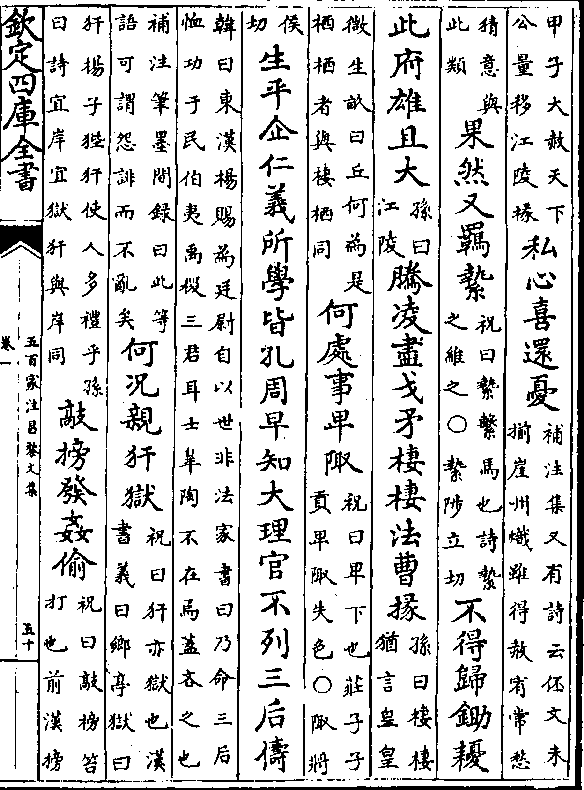 甲子大赦天下
公量移江陵掾
私心喜還憂
補注集又有詩云伾文未
揃崖州熾雖得赦宥常愁
猜意與
此類
果然又羈縶
祝曰縶繫馬也詩縶
之維之○縶陟立切
不得歸鋤耰
此府雄且大
孫曰
江陵
騰凌盡戈矛棲棲法曹掾
孫曰棲棲
猶言皇皇
微生畝曰丘何為是
栖栖者與棲栖同
何處事卑陬
祝曰卑下也莊子子
貢卑陬失色○陬將
侯
切
生平企仁義所學皆孔周早知大理官不列三后儔
韓曰東漢楊賜為廷尉自以世非法家書曰乃命三后
恤功于民伯夷禹稷三君耳士臯陶不在焉蓋吝之也
補注筆墨閒錄曰此等
語可謂怨誹而不亂矣
何況親犴獄
祝曰犴亦獄也漢
書義曰鄉亭獄曰
犴揚子狴犴使人多禮乎孫
曰詩宜岸宜獄犴與岸同
敲搒發姦偷
祝曰敲搒笞
打也前漢搒
欽定四庫全書
五百家注昌黎文集
卷一
五十